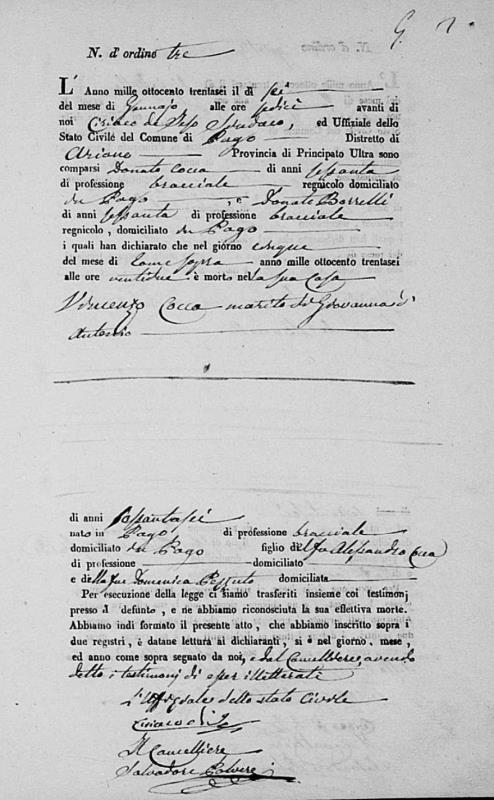 N. d'ordine tre
L'Anno mille ottocento trentasei il dì sei
del mese di Gennajo alle ore sedici avanti di
noi Ciriaco de Sindaco, ed Uffiziale dello
Stato Civile del Comune di Pago Distretto di
Ariano Provincia di Principato Ultra sono
comparsi Donato Cocca di anni sessanta
di professione bracciale regnicolo domiciliato
in Pago, e Donato Borrelli
di anni sessanta di professione bracciale
regnicolo, domiciliato in Pago
i quali han dichiarato che nel giorno cinque
del mese di come sopra anno mille ottocento trentasei
alle ore ventidue è morto nella sua Casa
Vincenzo Cocca marito di Giovanna d'
Antonio
di anni sessantasei
nato in Pago, di professione bracciale
domiciliato in Pago figlio del fu Alessandro Cocca
di professione domiciliato
e della fu Domenica domiciliata
Per esecuzione della legge ci siamo trasferiti insieme coi testimonj
presso il defunto, e ne abbiamo riconosciuta la sua effettiva morte.
Abbiamo indi formato il presente atto, che abbiamo inscritto sopra i
due registri, è datane lettura ai dichiaranti, si è nel giorno, mese,
ed anno come sopra segnato da noi, e dal Cancelliere, avendo
detto i testimonj di esser illetterati
L'Uffiziale dello stato Civile
Ciriaco
Il Cancelliere
Salvadore Polvere